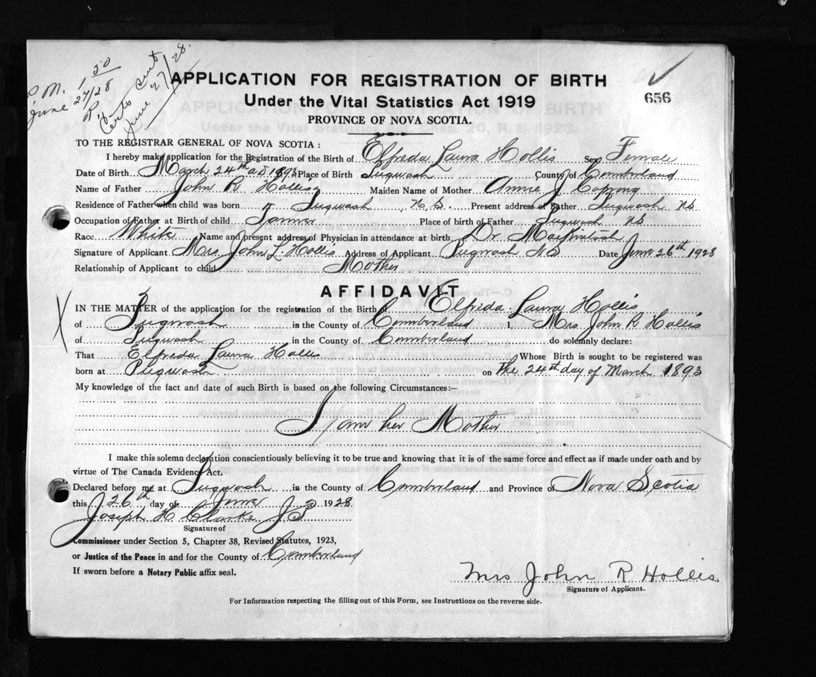 P.M. 1.50
June 27/28
R.
Certs sent
June 27/28.
APPLICATION FOR REGISTRATION OF BIRTH
656
Under the Vital Statistics Act 1919
PROVINCE OF NOVA SCOTIA.
TO THE REGISTRAR GENERAL OF NOVA SCOTIA :
I hereby make application for the Registration of the Birth of Elfreda Laura Hollis Sex Female
Date of Birth March 24th AD 1893 Place of Birth Pugwash County of Cumberland
Name of Father John R. Hollis Maiden Name of Mother Annie J
Residence of Father when child was born Pugwash N.S. Present address of Father Pugwash NS
Occupation of Father at Birth of child Place of birth of Father Pugwash NS
Race White Name and present address of Physician in attendance at birth Dr. MacKintosh
Signature of Applicant Mrs John Hollis Address of Applicant Pugwash NS Date June 26th 1928
Relationship of Applicant to child Mother
AFFIDAVIT
IN THE MATTER of the application for the registration of the Birth of Elfreda Laura Hollis
of Pugwash in the County of Cumberland I, Mrs John R Hollis
of Pugwash in the County of Cumberland do solemnly declare:
That Elfreda Laura Hollis Whose Birth is sought to be registered was
born at Pugwash on the 24th day of March 1893
My knowledge of the fact and date of such Birth is based on the following Circumstances:—
I am her Mother
I make this solemn declaration conscientiously believing it to be true and knowing that it is of the same force and effect as if made under oath and by
virtue of The Canada Evidence Act.
Declared before me at Pugwash in the County of Cumberland and Province of Nova Scotia
this 26th day of June 1928
Joseph H. Clarke J P
Signature of
Commissioner under Section 5, Chapter 38, Revised Statutes, 1923,
or Justice of the Peace in and for the County of Cumberland
If sworn before a Notary Public affix seal.
Mrs John R Hollis
Signature of Applicants.
For Information respecting the filling out of this Form, see Instructions on the reverse side.